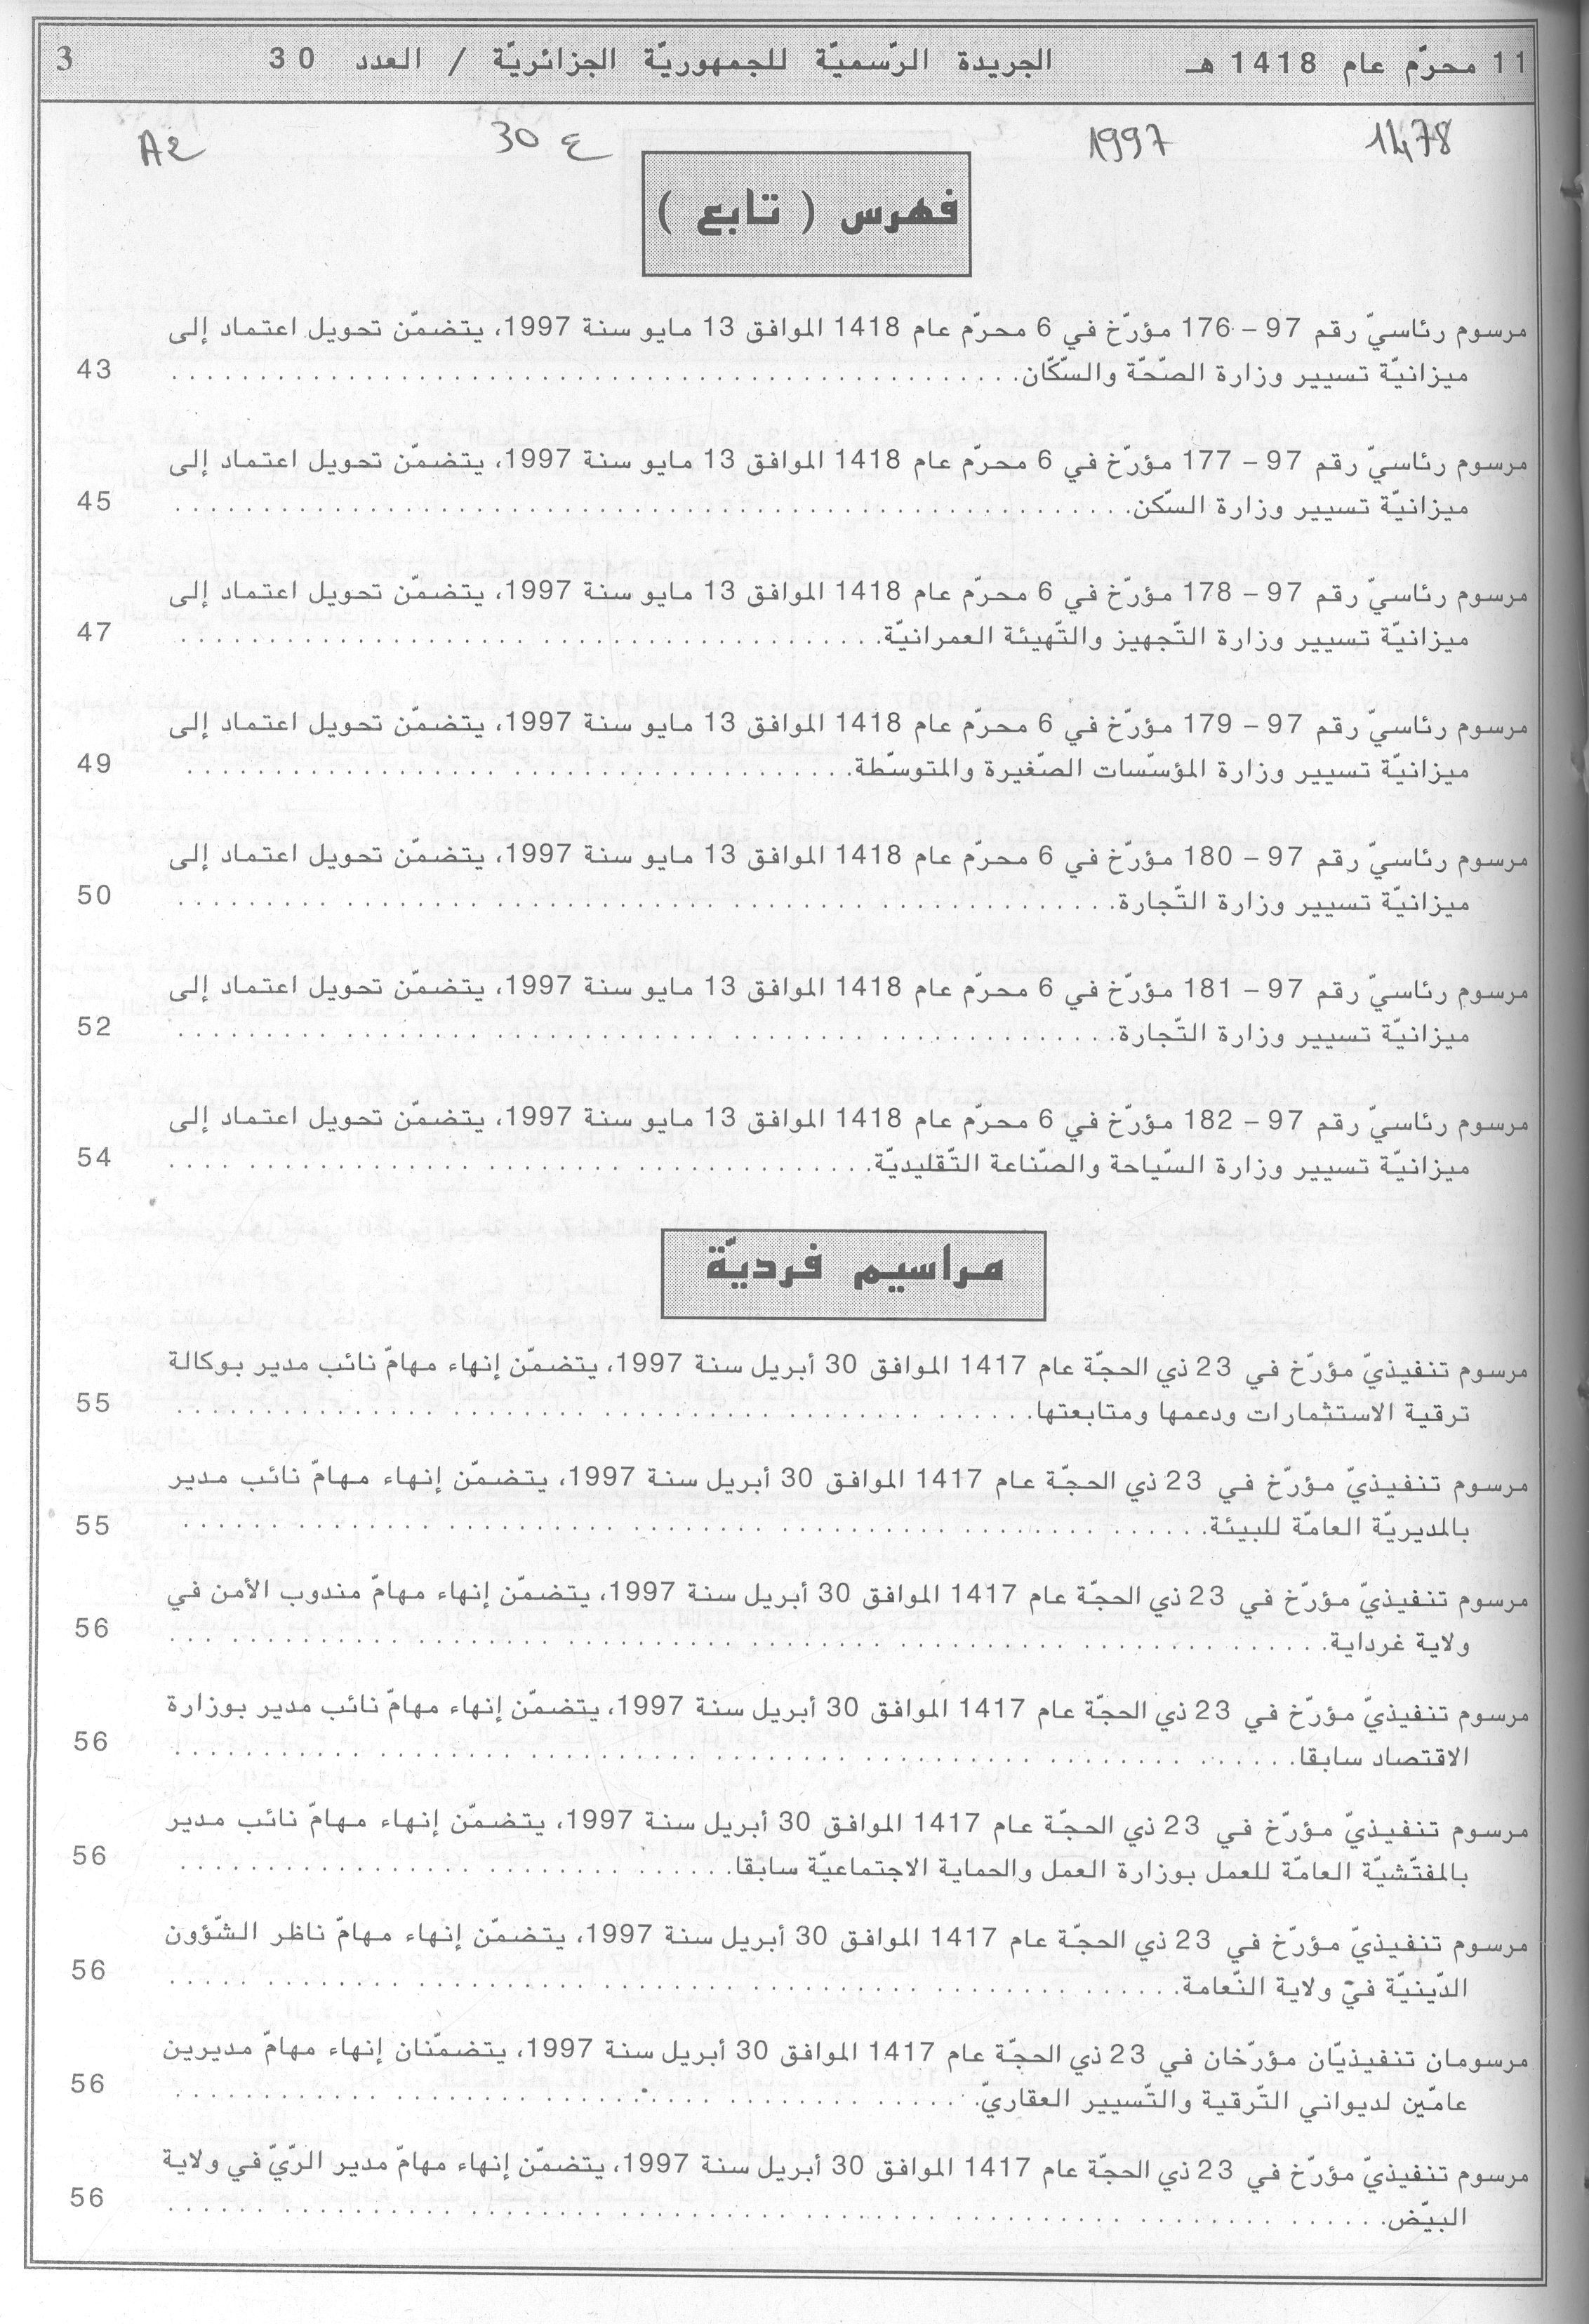 11 محرّم عام 1418 هـ الجريدة الرّسميّة للجمهوريّة الجزائريّة / العدد 30 3
1478 1997 ع 30 A2
فهرس ( تابع )
مرسوم رئاسيّ رقم 97 – 176 مؤرّخ في 6 محرّم عام 1418 الموافق 13 مايو سنة 1997، يتضمّن تحويل اعتماد إلى
ميزانيّة تسيير وزارة الصّحّة والسّكّان. 43
مرسوم رئاسيّ رقم 97 – 177 مؤرّخ في 6 محرّم عام 1418 الموافق 13 مايو سنة 1997، يتضمّن تحويل اعتماد إلى
ميزانيّة تسيير وزارة السّكن. 45
مرسوم رئاسيّ رقم 97 – 178 مؤرّخ في 6 محرّم عام 1418 الموافق 13 مايو سنة 1997، يتضمّن تحويل اعتماد إلى
ميزانيّة تسيير وزارة التّجهيز والتّهيئة العمرانيّة. 47
مرسوم رئاسيّ رقم 97 – 179 مؤرّخ في 6 محرّم عام 1418 الموافق 13 مايو سنة 1997، يتضمّن تحويل اعتماد إلى
ميزانيّة تسيير وزارة المؤسّسات الصّغيرة والمتوسّطة. 49
مرسوم رئاسيّ رقم 97 – 180 مؤرّخ في 6 محرّم عام 1418 الموافق 13 مايو سنة 1997، يتضمّن تحويل اعتماد إلى
ميزانيّة تسيير وزارة التّجارة. 50
مرسوم رئاسيّ رقم 97 – 181 مؤرّخ في 6 محرّم عام 1418 الموافق 13 مايو سنة 1997، يتضمّن تحويل اعتماد إلى
ميزانيّة تسيير وزارة التّجارة. 52
مرسوم رئاسيّ رقم 97 – 182 مؤرّخ في 6 محرّم عام 1418 الموافق 13 مايو سنة 1997، يتضمّن تحويل اعتماد إلى
ميزانيّة تسيير وزارة السّياحة والصّناعة التّقليديّة. 54
مراسيم فرديّة
مرسوم تنفيذيّ مؤرّخ في 23 ذي الحجّة عام 1417 الموافق 30 أبريل سنة 1997، يتضمّن إنهاء مهامّ نائب مدير بوكالة
ترقية الاستثمارات ودعمها ومتابعتها. 55
مرسوم تنفيذيّ مؤرّخ في 23 ذي الحجّة عام 1417 الموافق 30 أبريل سنة 1997، يتضمّن إنهاء مهامّ نائب مدير
بالمديريّة العامّة للبيئة. 55
مرسوم تنفيذيّ مؤرّخ في 23 ذي الحجّة عام 1417 الموافق 30 أبريل سنة 1997، يتضمّن إنهاء مهامّ مندوب الأمن في
ولاية غرداية. 56
مرسوم تنفيذيّ مؤرّخ في 23 ذي الحجّة عام 1417 الموافق 30 أبريل سنة 1997، يتضمّن إنهاء مهامّ نائب مدير بوزارة
الاقتصاد سابقا. 56
مرسوم تنفيذيّ مؤرّخ في 23 ذي الحجّة عام 1417 الموافق 30 أبريل سنة 1997، يتضمّن إنهاء مهامّ نائب مدير
بالمفتّشيّة العامّة للعمل بوزارة العمل والحماية الاجتماعيّة سابقا. 56
مرسوم تنفيذيّ مؤرّخ في 23 ذي الحجّة عام 1417 الموافق 30 أبريل سنة 1997، يتضمّن إنهاء مهامّ ناظر الشّؤون
الدّينيّة في ولاية النّعامة. 56
مرسومان تنفيذيّان مؤرّخان في 23 ذي الحجّة عام 1417 الموافق 30 أبريل سنة 1997، يتضمّنان إنهاء مهامّ مديرين
عامّين لديواني التّرقية والتّسيير العقاريّ. 56
مرسوم تنفيذيّ مؤرّخ في 23 ذي الحجّة عام 1417 الموافق 30 أبريل سنة 1997، يتضمّن إنهاء مهامّ مدير الرّيّ في ولاية
البيّض. 56